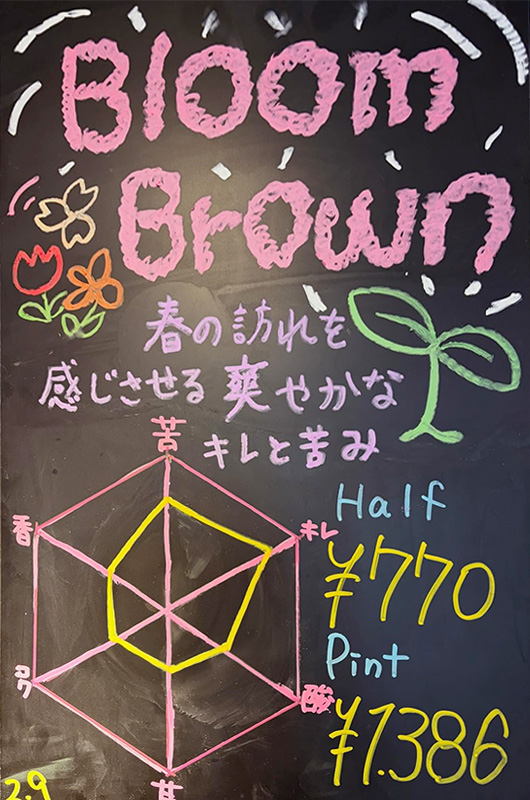 Bloom
Brown
春の訪れを
感じさせる爽やかな
キレと苦み
苦
香
キレ
コク
酸
甘
Half
¥770
Pint
¥1.386
2.9